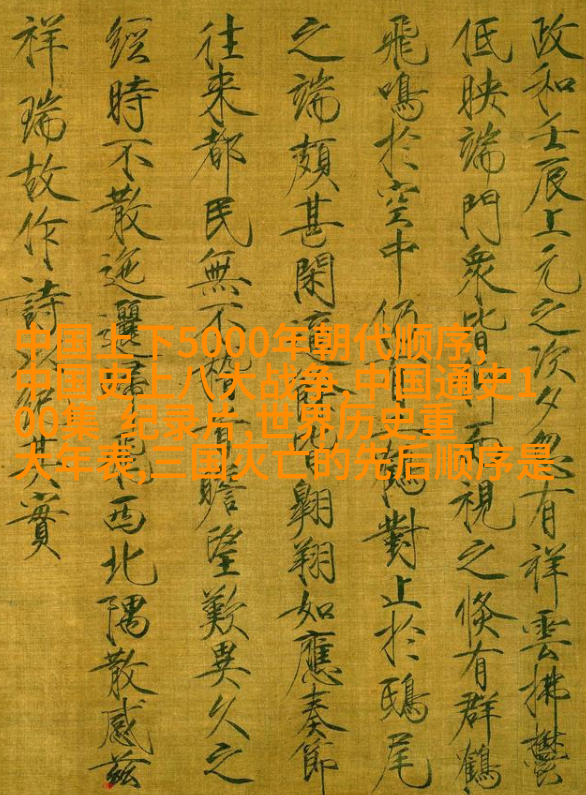 政和壬辰上元之次夕忽有祥雲拂鬱
低映端門衆皆而視之倏有群鶴
飛鳴於空中仍鶴對止於鴟尾
之端頗甚閑適皆翺翔如應奏節
往來都民無不瞻望歎異久之
經時不散迤邐西北隅散感茲
祥瑞故作詩紀其實
中国上下5000年朝代顺序,
中国史上八大战争,中国通史1
00集 纪录片,世界历史重
大年表,三国灭亡的先后顺序是